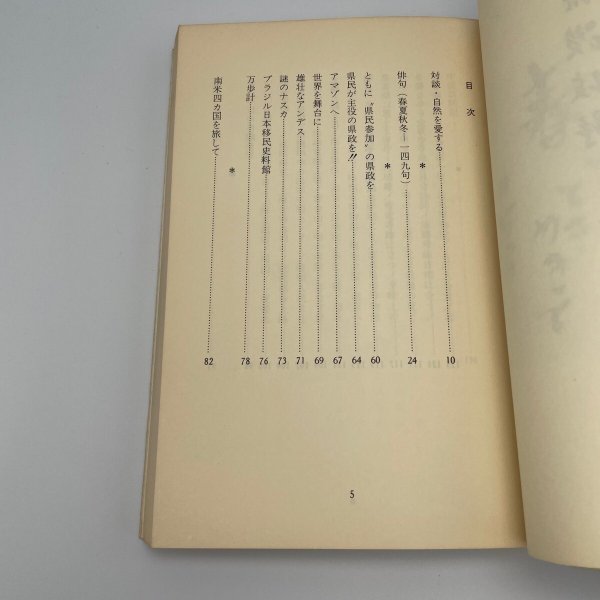 目次
対談・自然を愛する……10
＊
俳句（春夏秋冬―一四九句）……24
＊
ともに〝県民参加〟の県政を……60
県民が主役の県政を!!……64
アマゾンへ……67
世界を舞台に……69
雄壮なアンデス……71
謎のナスカ……73
ブラジル日本移民史料館……76
万歩計……78
＊
南米四カ国を旅して……82
5